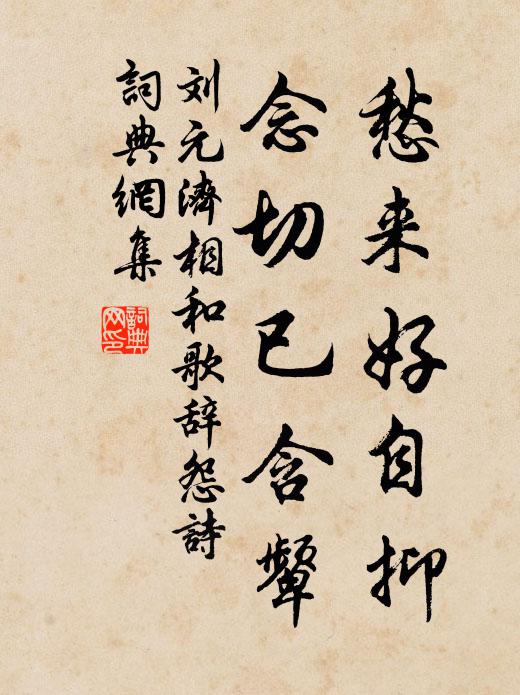 愁来好自抑
念切已含颦
刘元濟相和歌辞怨詩
詞典網集
詞典网印